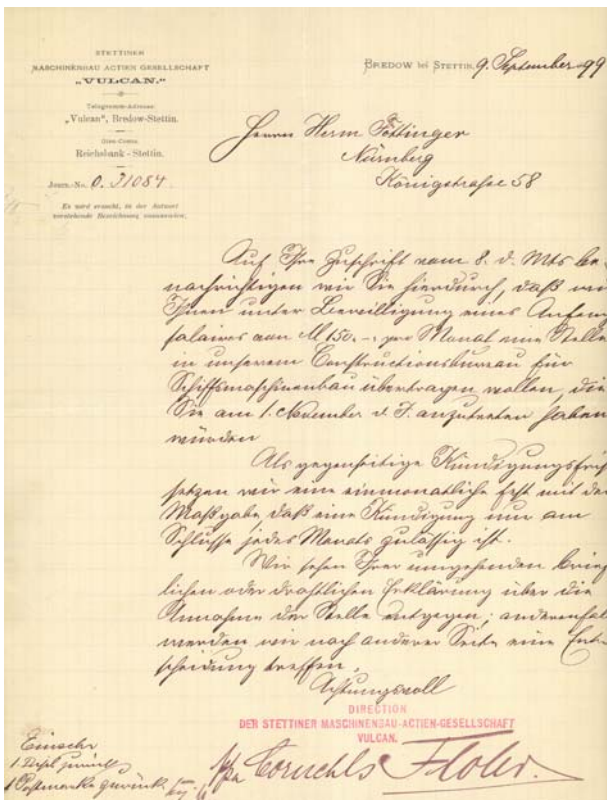 STETTINER
MASCHINENBAU ACTIEN GESELLSCHAFT
„VULCAN."
Telegramm-Adresse:
„Vulcan", Bredow-Stettin.
Giro-Conto:
Reichsbank - Stettin.
Journ.-No. O. 31084.
Es wird ersucht, in der Antwort
vorstehende Bezeichnung anzuwenden.
BREDOW bei STETTIN, 9. September 99
Herrn Herm Föttinger
Nürnberg
Königstraße 58
Auf Ihre Zuschrift vom 8. d. Mts be-
nachrichtigen wir Sie hierdurch, daß wir
Ihnen unter Bewilligung eines Anfang
salaires von M 150.-. pro Monat eine Stelle
in unserem Constructionsbureau für
Schiffsmaschinenbau übertragen wollen, die
Sie am 1. November d. J. anzutreten haben
würden
Als gegenseitige Kündigungsfrist
setzen wir eine einmonatliche fest mit der
Maßgabe daß eine Kündigung nur am
Schlusse jedes Monats zulässig ist.
Wir sehen Ihrer umgehenden brief
lichen oder drahtlichen Erklärung über die
Annahme der Stelle entgegen; anderenfalls
werden wir nach anderer Seite eine Ent-
scheidung treffen.
Achtungsvoll
DIRECTION
DER STETTINER MASCHINENBAU-ACTIEN-GESELLSCHAFT
VULCAN.
Flohr.
Einschr
1. zurück
1 Postmarke zurück.